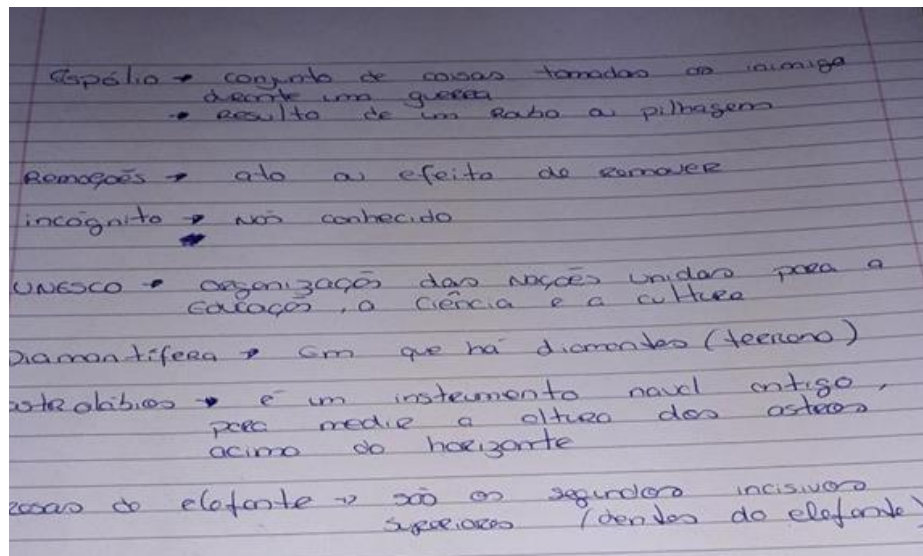 Espólio → conjunto de coisas tomadas ao inimigo
durante uma guerra
→ resulto de um Roubo ou pilhagem
Remoções → ato ou efeito de remover
incógnito → não conhecido
UNESCO → organização das Nações Unidas para a
Educação, a Ciência e a cultura
Diamantífera → em que há diamantes (terreno)
astrolábios → é um instrumento naval antigo,
para medir a altura dos astros
acima do horizonte
do elefante → são os segundos incisivos
superiores (dentes do elefante)